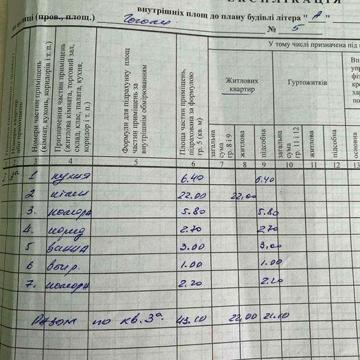 ЕКСПЛІКАЦІЯ
внутрішніх площ до плану будівлі літера " А "
(пров., площ.) Гоголя № 5
У тому числі призначена під
Номери частин приміщень (кімнат, кухонь, коридорів і т. п.)
Призначення частин приміщень (житлова кімната, торговий зал, склад, клас, палата, кухня, коридор і т. п.)
Формули для підрахунку площ частин приміщень за внутрішнім обмірюванням
Площа частин приміщень, підрахована за формулою гр. 5 (кв. м)
Житлових квартир
Гуртожитків
загальна сума гр. 8 і 9
житлова
підсобна
загальна сума гр. 11 і 12
житлова
підсобна
основна
4 5 6 7 8 9 10 11 12 13
1 кухня 6.40 6.40
2 кімн 22.00 22,00
3. комора 5.80 5.80
4 корид 2.70 2.70
5 ванна 3.00 3,00
6 вбир. 1.00 1.00
7. комора 2.20 2.20
Разом по кв. 3а. 43.10 22,00 21.10